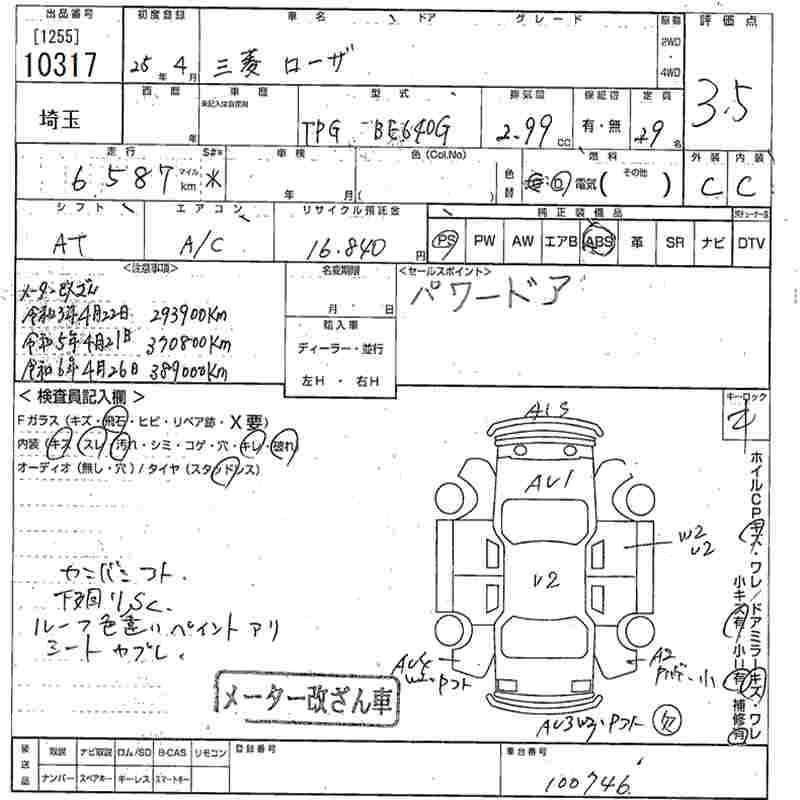 出品番号 初度登録 車名 ドア グレード 駆動 評価点
[1255]
10317
25年 4月 三菱 ローザ
2WD
・
4WD
3.5
埼玉
西暦 車歴 型式 排気量 保証書 定員
未記入は自家用
年 TPG-BE640G 2.99CC 有・無 29名
走行 S#* 車検 色(Col.No) 色替 燃料 外装 内装
6587 マイル km * 年 月 ( ) 電気 ( その他 ) C C
シフト エアコン リサイクル預託金 純正装備品
AT A/C 16.840円 PS PW AW エアB ABS 革 SR ナビ DTV
<注意事項> 名変期限 <セールスポイント>
メーター改ざん
令和3年4月22日 293900Km
令和5年4月21日 370800Km
令和6年4月26日 389000Km
月 日
輸入車
ディーラー・並行
左H ・ 右H
パワードア
<検査員記入欄>
Fガラス (キズ・飛石・ヒビ・リペア跡・X要)
内装 (キズ・スレ・汚れ・シミ・コゲ・穴・キレ・破れ)
オーディオ (無し・穴) / タイヤ (スタッドレス)
キーロック
A1S
AU1
W2
U2
U2
ホイルCPキズ・ワレ/ドアミラーキズ・ワレ
小キズ有/小U有 補修有
下回りS,C
ルーフ色違いペイントアリ
シートヤブレ
A2
AU3 W3
欠
メーター改ざん車
後送品 取説 ナビ取説 ロム/SD B-CAS リモコン 登録番号 車台番号
ナンバー スペアキー キーレス スマートキー
100746